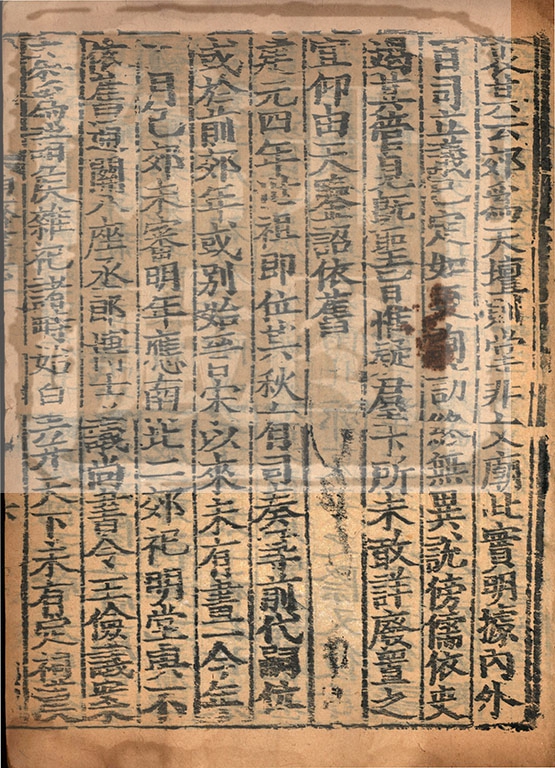 郊為天壇則堂非文廟此實明據內外
百司立議已定如更詢訪終無異說傍儒依史
竭其管見既聖旨惟疑群下所未敢詳廢置之
宜仰由天鑒詔依舊
建元四年世祖即位其秋有司奏尋前代嗣位
或於前郊年或別始晉宋以來未有畫一今年正
月已郊未審明年應南北二郊祀明堂與不
依舊通關八座丞郎博士議尚書令王儉議案
秦為諸侯雜祀諸畤始皇并天下未有定祠